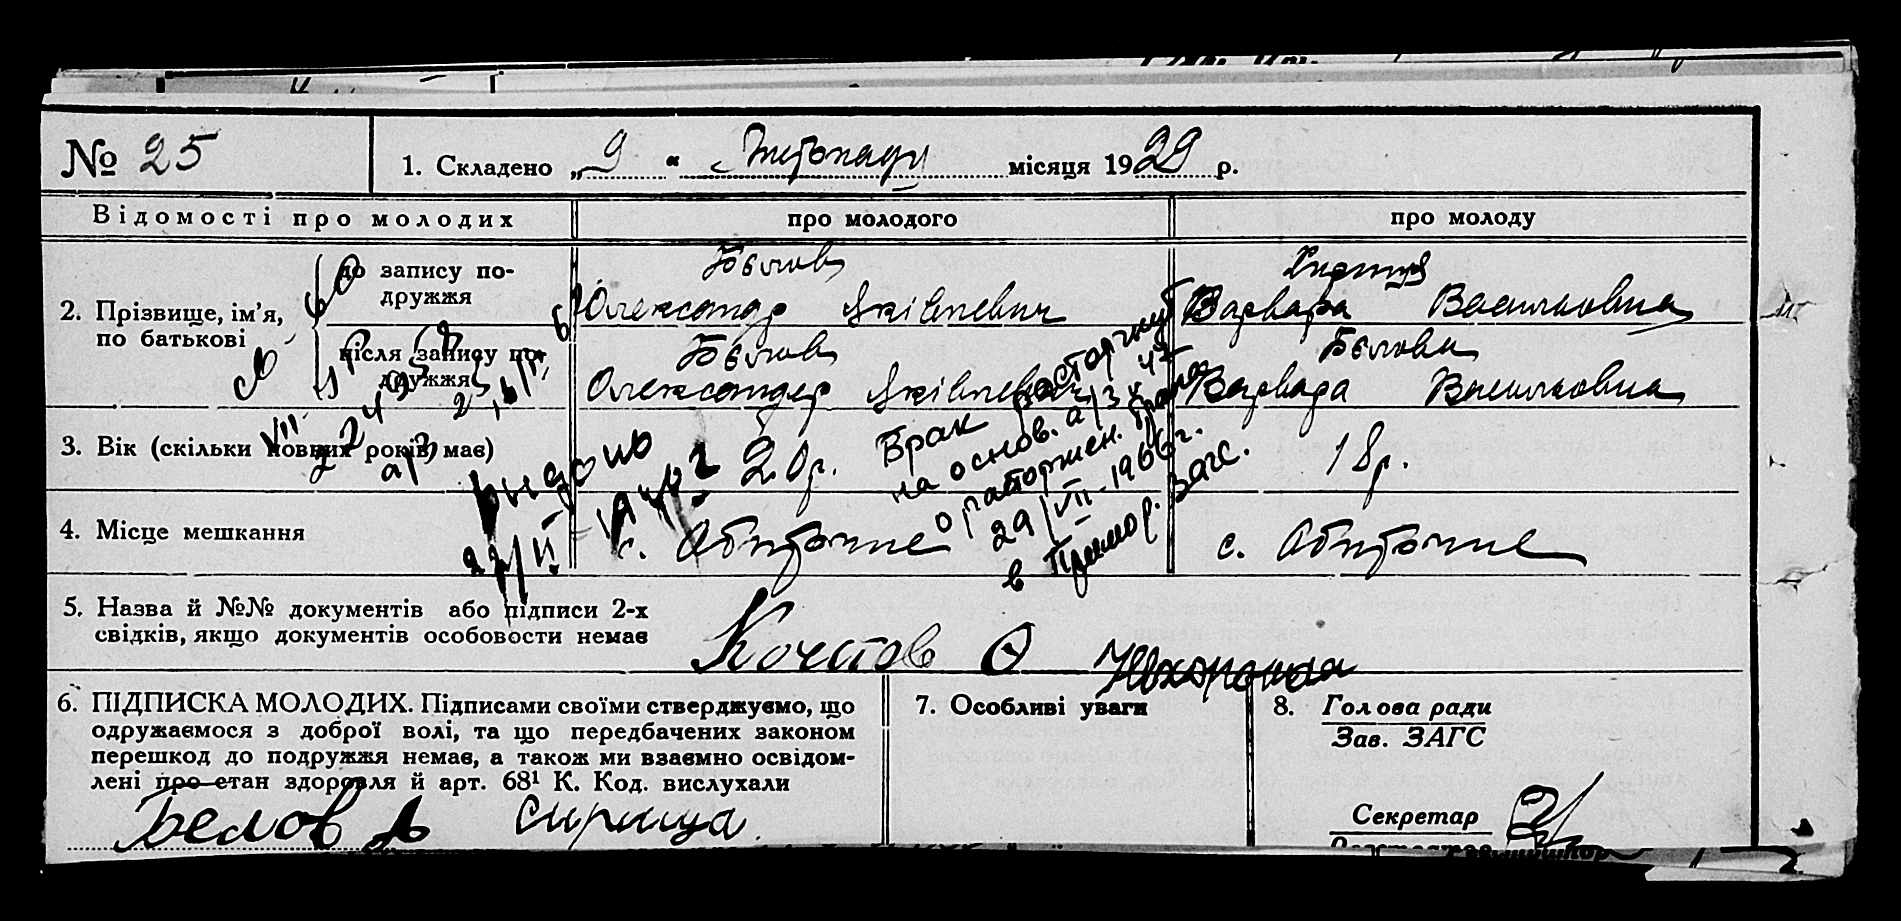 № 25
1. Складено „ 9 “ Жтопаду місяця 1929 р.
Відомості про молодих
про молодого
про молоду
2. Прізвище, ім’я, по батькові
до запису подружжя
Бєлов
Олександр Яківлевич
Варвара Васильовна
після запису подружжя
Бєлов
Олександер Яківлевич
Бєлова
Варвара Васильовна
3. Вік (скільки повних років має)
20р.
18р.
4. Місце мешкання
с. Обиточне
с. Обиточне
Брак расторгнут
на основ. а/з № 47
о расторжен. брака
29/VII-1966г.
в Примор. загс.
выдано
5. Назва й №№ документів або підписи 2-х
свідків, якщо документів особовости немає
Кочетов О
6. ПІДПИСКА МОЛОДИХ. Підписами своїми стверджуємо, що
одружаємося з доброї волі, та що передбачених законом
перешкод до подружжя немає, а також ми взаємно освідом-
лені про стан здоровля й арт. 68¹ К. Код. вислухали
Белов А Сирица
7. Особливі уваги
8. Голова ради
Зав. ЗАГС
Секретар